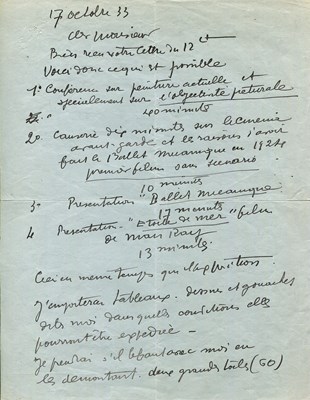 17 octobre 33
cher monsieur
Bien reçu votre lettre du 12 ct
Voici donc ce qui est possible
1° Conférence sur peinture actuelle et
spécialement sur l'objectivité picturale
40 minutes
2o Causerie dix minutes sur le cinéma
avant-garde et les raisons j'avoir
fait le Ballet Mecanique en 1924
premier film sans scenario
10 minutes
3° Presentation "Ballet Mecanique
17 minutes
4 Presentation "Etoile de mer" film
de Man Ray
13 minutes.
Ceci en meme temps que l'exposition.
J'emporterai tableaux. dessins et gouaches
dits moi dans quelles conditions elles
pourront être expédiée —
Je prendrai s'il le faut avec moi en
les demontant. deux grandes toiles (60)